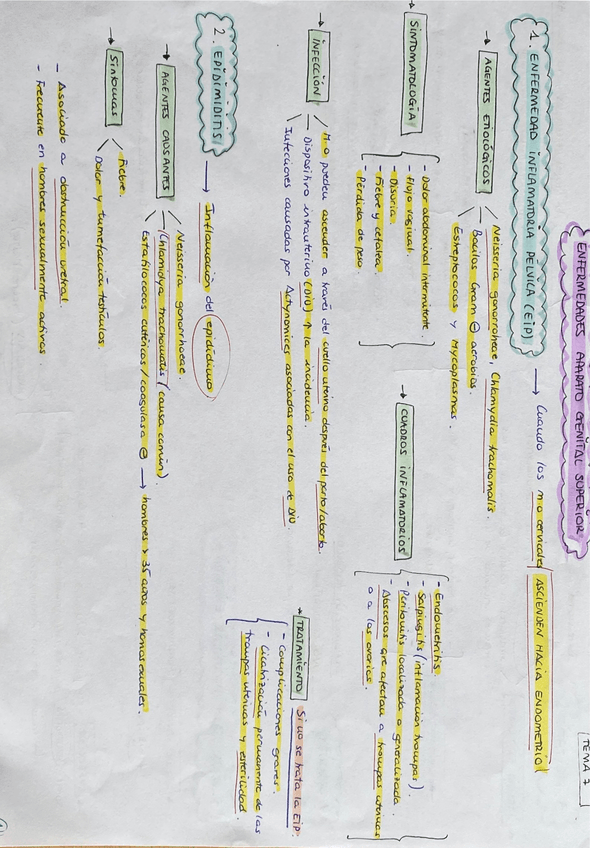 TEMA 7
ENFERMEDADES APARATO GENITAL SUPERIOR
1. ENFERMEDAD INFLAMATORIA PÉLVICA (EIP) → Cuando los m.o cervicales ASCIENDEN HACIA ENDOMETRIO
→ AGENTES ETIOLÓGICOS
Neisseria gonorrhoeae, Chlamydia trachomatis.
Bacilos Gram ⊖ aerobios.
Estreptococos y Mycoplasmas.
→ SINTOMATOLOGÍA
- Dolor abdominal intermitente.
- Flujo vaginal.
- Disuria.
- Fiebre y cefalea.
- Pérdida de peso.
→ CUADROS INFLAMATORIOS
- Endometritis
- Salpingitis (inflamación trompas).
- Peritonitis localizada o generalizada.
- Abscesos que afectan a trompas uterinas
o a los ovarios.
→ INFECCIÓN
M.o pueden ascender a través del cuello uterino después del parto/aborto.
Dispositivo intrauterino (DIU) ↑ la incidencia.
Infecciones causadas por Actynomices asociadas con el uso de DIU.
→ TRATAMIENTO Si no se trata la EIP.
- Complicaciones graves.
- Cicatrización permanente de las
trompas uterinas y esterilidad.
2. EPIDIMIDITIS → Inflamación del epidídimo
→ AGENTES CAUSANTES
Neisseria gonorrhoeae.
Chlamidya trachomatis (causa común)
Estafilococos entéricos / coagulasa ⊖ → hombres > 35 años y homosexuales.
→ Síntomas
Fiebre.
Dolor y tumefacción testículos.
- Asociado a obstrucción uretral.
- Frecuente en hombres sexualmente activos.